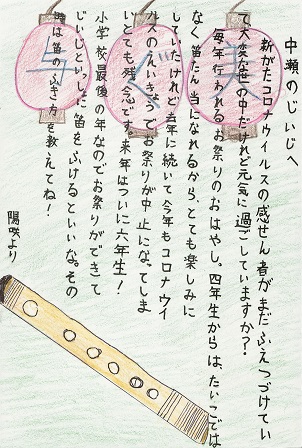 中瀬のじいじへ
新がたコロナウイルスの感せん者がまだふえつづけてい
て大変な世の中だけれど元気に過ごしていますか？
毎年行われるお祭りのおはやし。四年生からは、たいこでは
なく、笛たん当になれるから、とても楽しみに
していたけれど去年に続いて今年もコロナウイ
ルスのえいきょうでお祭りが中止になってしま
いとても残念です。来年はついに六年生！
小学校最後の年なのでお祭りができて
じいじといっしょに笛をふけるといいな。その
時は笛のふき方を教えてね！
陽咲より